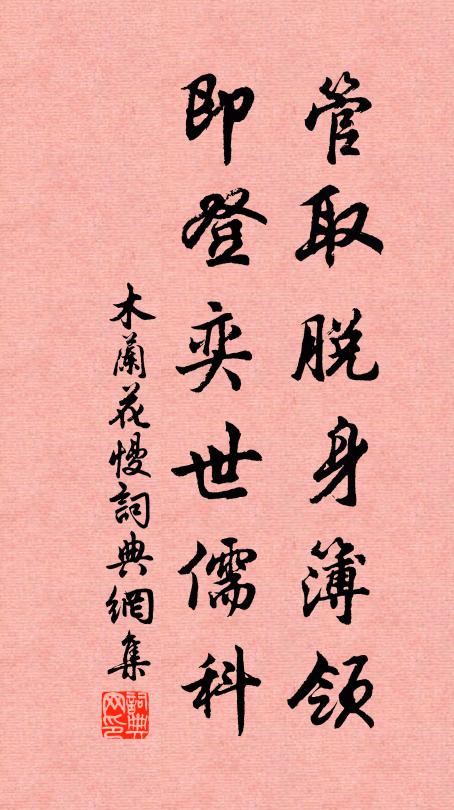 管取脫身簿領
即登奕世儒科
木蘭花慢詞典網集
詞典网印